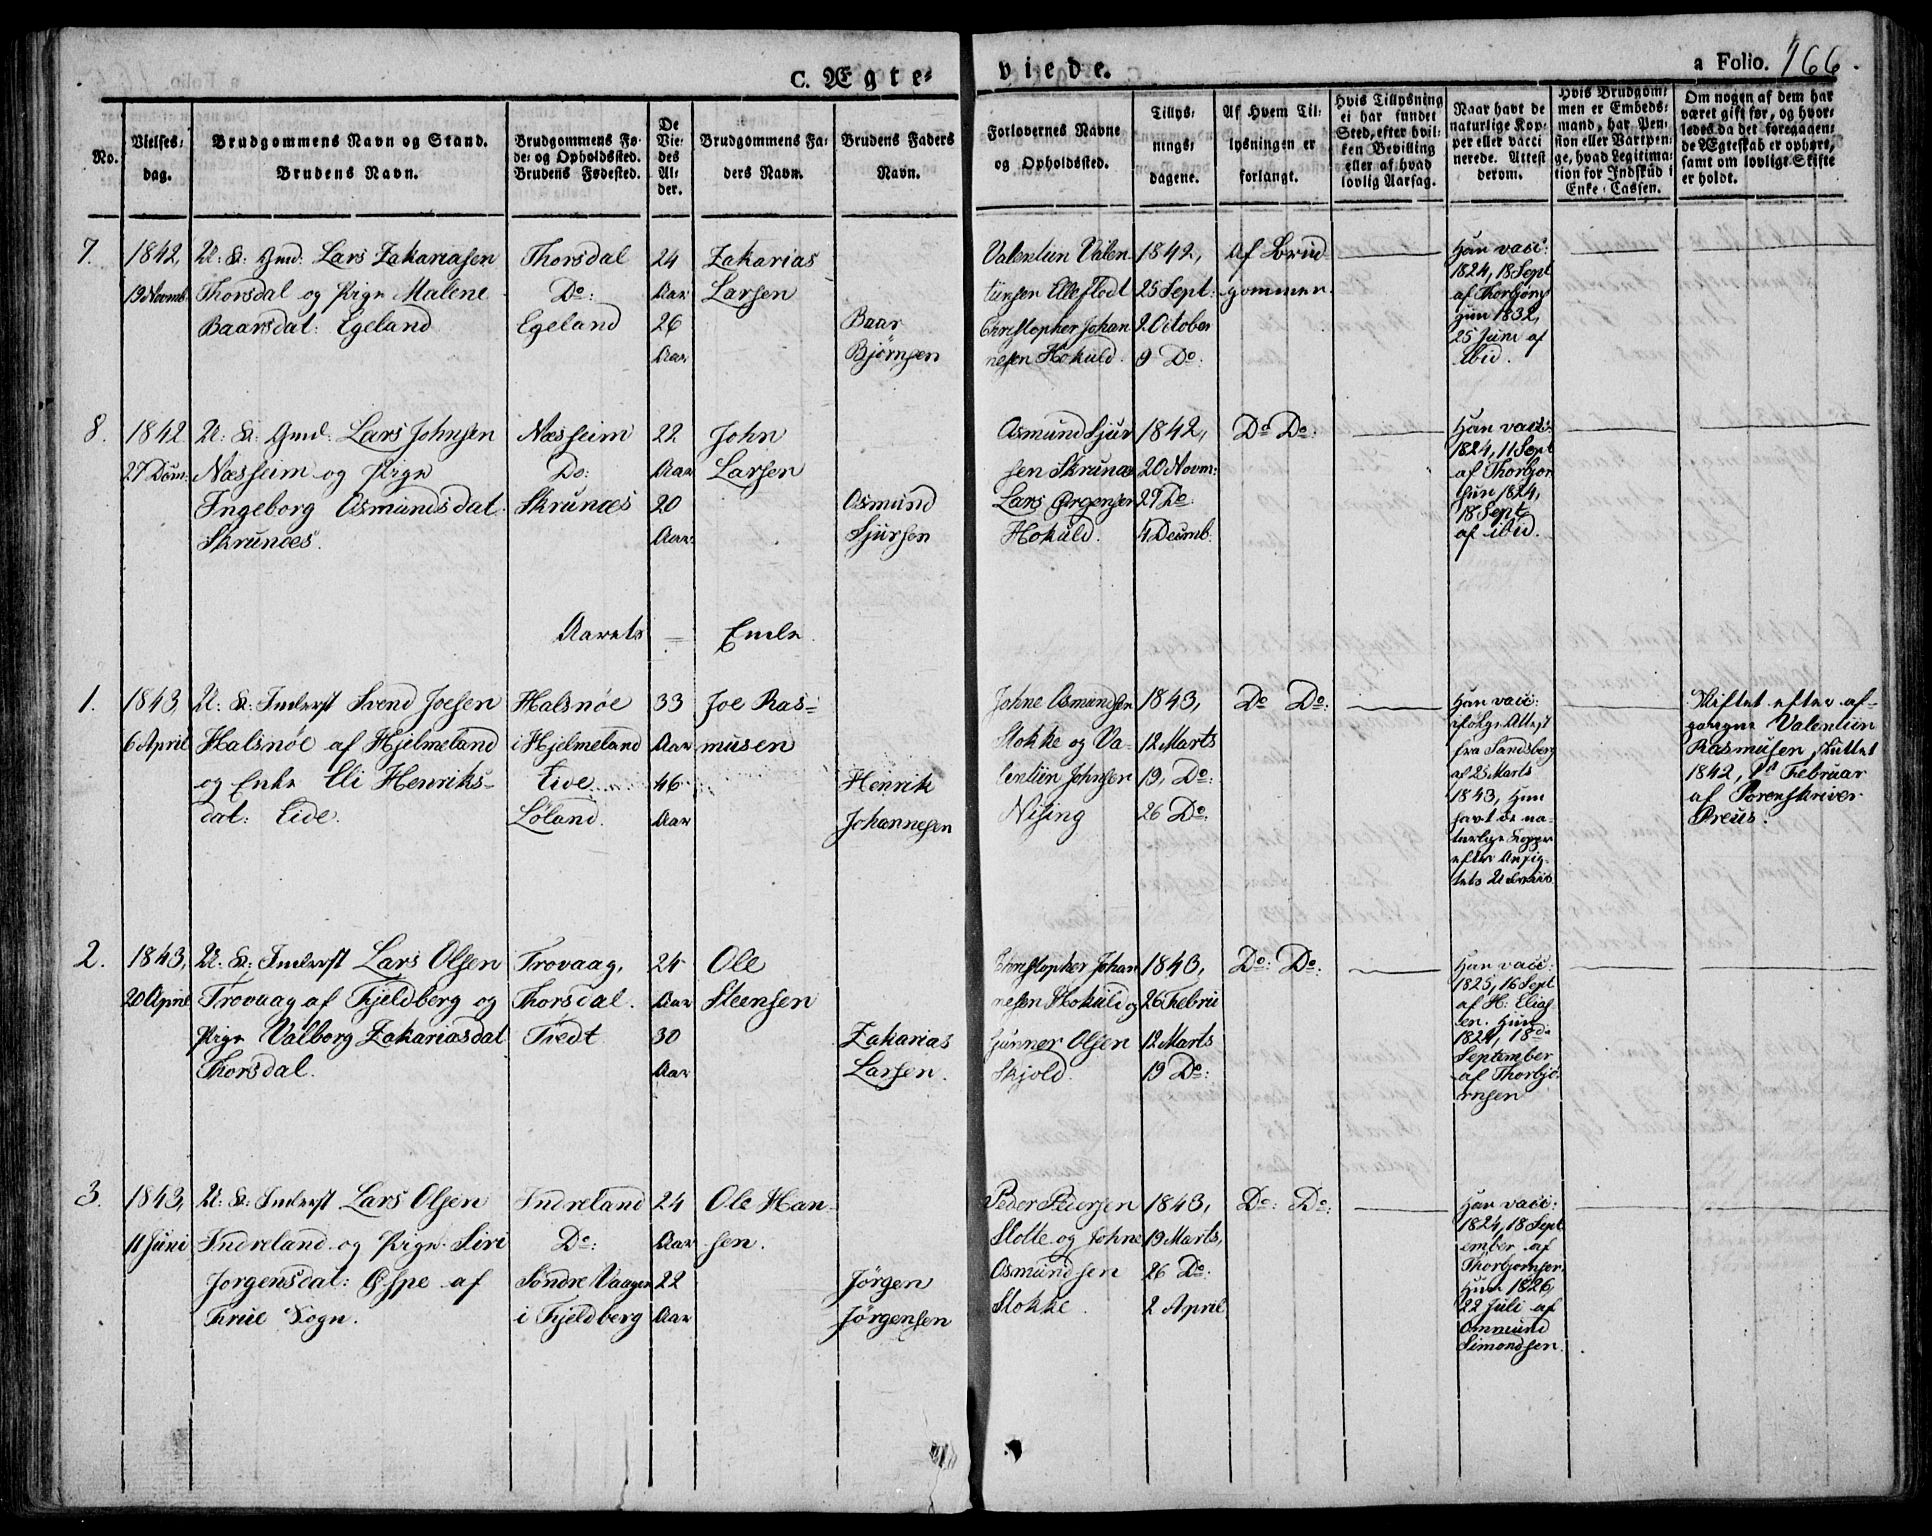 C. Ægte-
viede.
a Folio. 166.
No.
Vielses-
dag.
Brudgommens Navn og Stand.
Brudens Navn.
Brudgommens Fø-
de- og Opholdssted.
Brudens Fødested.
De
Vie-
des
Al-
der.
Brudgommens Fa-
ders Navn.
Brudens Faders
Navn.
Forlovernes Navne
og Opholdssted.
Tillys-
nings-
dagene.
Af Hvem Til-
lysningen er
forlangt.
Hvis Tillysning
ei har fundet
Sted, efter hvil-
ken Bevilling
eller af hvad
lovlig Aarsag.
Naar havt de
naturlige Kop-
per eller vacci
nerede. Attest
derom.
Hvis Brudgom-
men er Embeds-
mand, har Pen-
sion eller Vartpen-
ge, hvad Legitima-
tion for Indskud i
Enke-Cassen.
Om nogen af dem har
været gift før, og hvor-
ledes da det foregaaen-
de Ægteskab er ophørt,
samt om lovligt Skifte
er holdt.
7.
1842,
19 Novmb
U: K: Gmd. Lars Zakariasen
Thorsdal og Pige Malene
Baarsdat: Egeland
Thorsdal
Do:
Egeland
24
Aar
26
Aar
Zakarias
Larsen
Baar
Bjørnsen
Valentin Valen
tinsen Elleflodt
Christopher Johan
nesen Hokuld.
1842,
25 Sept:
2 October
9 Do.
Af Brud
gommen
Han vacc:
1824, 18 Sept
af Thorbjørns
hun 1832,
25 Juni af
ibid.
8.
1842
27 Dcm:
U: K: Gmd. Lars Johnsen
Næsheim og Pige
Ingeborg Osmundsdat.
Skrunæs.
Næsheim
Do:
Skrunæs
22
Aar
20
Aar
John
Larsen
Osmund
Sjursen
Osmund Sjur
sen Skrunæs
Lars Ørgensen
Hokuld.
1842,
20 Novm:
27 Do
4 Decmb.
Do Do:
Han vacc:
1824, 11 Sept
af Thorbjør
hun 1824,
18 Sept
af ibid.
Aarets – Ende.
1.
1843,
6 April
U: K: Inderst Svend Joesen
Halsnøe af Hjelmeland
og Enke Eli Henriks-
dat: Eide.
Halsnøe
i Hjelmeland
Eide
Løland.
33
Aar
46
Aar
Joe Ras-
musen
Henrik
Johannesen
Johne Osmundsen
Stokke og Va-
lentin Johnsen
Nising
1843,
12 Marts
19, Do:
26 Do:
Do Do:
Han vacc:
ifølge Attest
fra Sandsberg
af 25 Marts
1843, Hun
havt de na-
turlige Kopper
efter Ansig-
tets
Skiftet efter af-
gangne Valentin
Rasmusen sluttet
1842, 1st Februar
af Sorenskriver
Preus.
2.
1843,
20 April
U. K: Inderst Lars Olsen
Trovaag af Fjeldberg og
Pige Valborg Zakariasdat
Thorsdal.
Trovaag,
Thorsdal.
Tiedt
24
Aar
30
Aar
Ole
Steensen
Zakarias
Larsen.
Christopher Johan
nesen Hokuld og
Gunner Olsen
Skjold.
1843,
26 Febru
12 Marts
19 Do:
Do: Do:
Han vacc:
1825, 16 Sept
af H: Elias
en. Hun
1824, 18de
September
af Thorbjø-
rnsen
3.
1843,
11 Juni
U: K: Inderst Lars Olsen
Indreland og Pige Siri
Jorgensdat: Espe af
Indreland
Do:
Søndre Vaagen
i Fjeldberg
24
Aar
22
Aar
Ole Han-
sen.
Jörgen
Jörgensen
Peder Pedersen
Slotte og Johne
Osmundsen
Stokke.
1843,
19 Marts,
26 Do:
2 April
Do: Do:
Han vacc:
1824, 18 Sept
ember af
Thorbjørnsen
Hun 1826,
22 Juli af
Ommund
Simondsen.